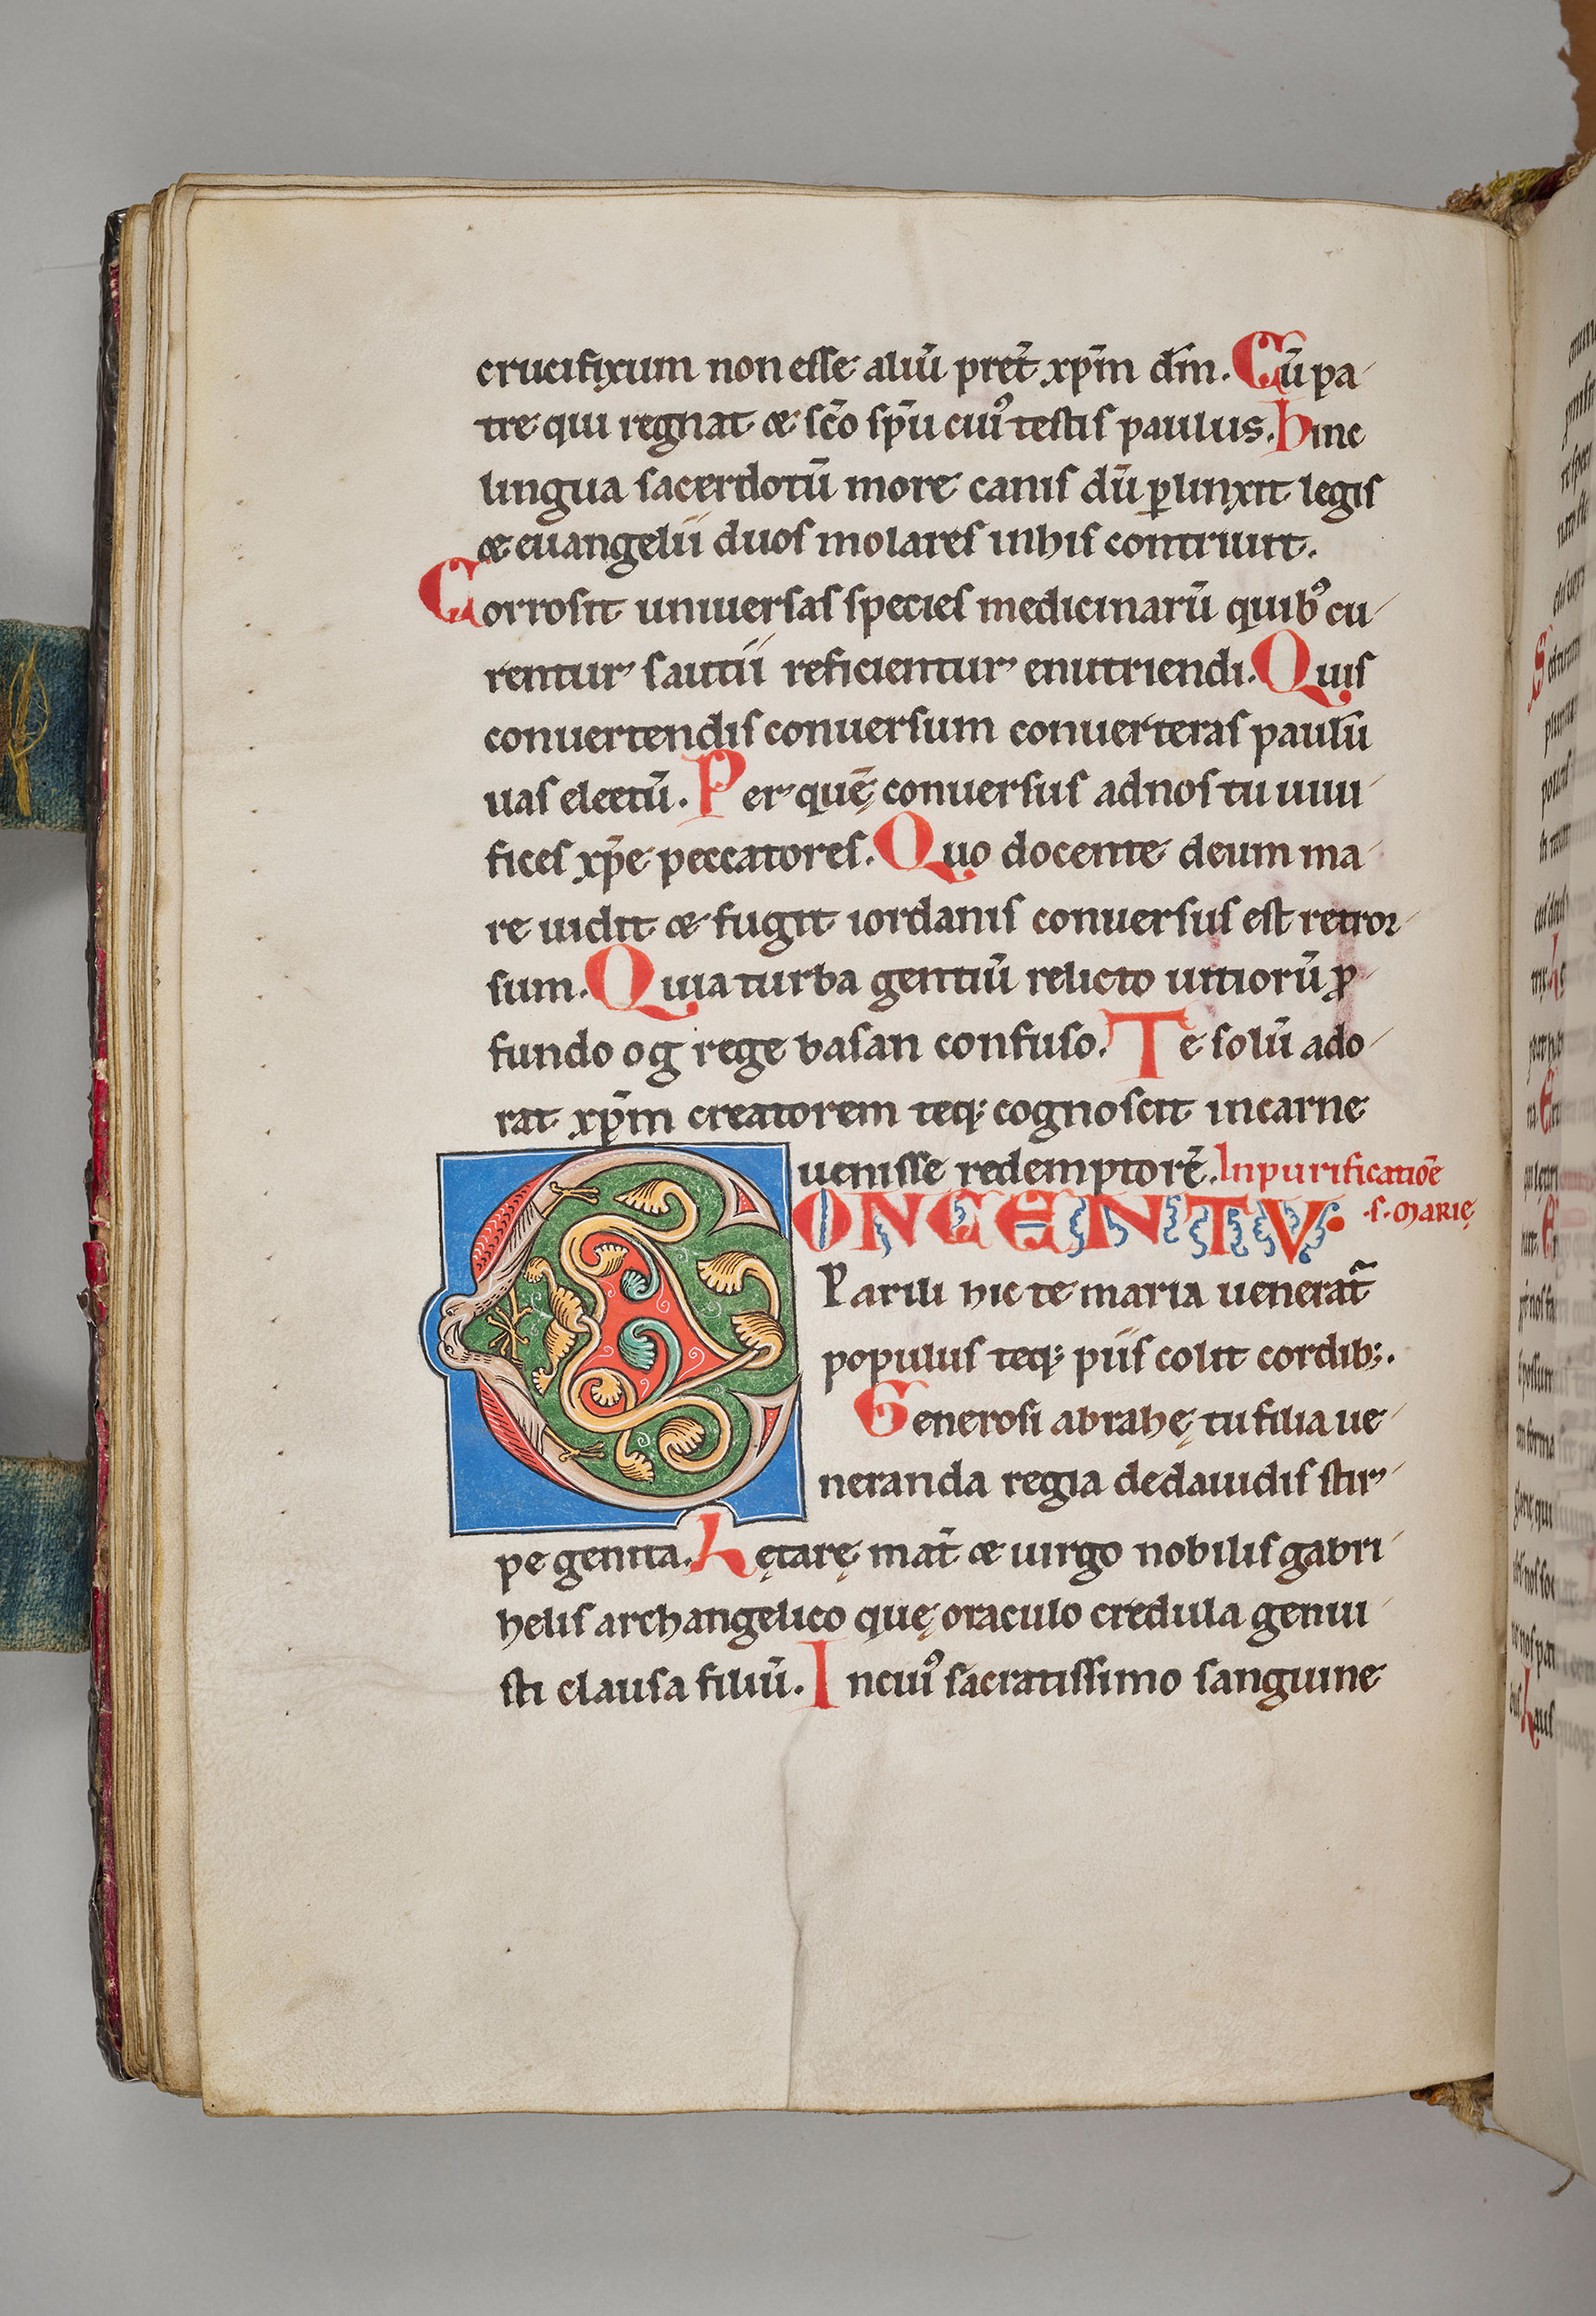 crucifixum non esse aliū pret̄ xp̄m dm̄. Cū pa
tre qui regnat & sc̄o sp̄u cui᾽ testis paulus. Hinc
lingua sacerdotū more canis dū ꝑlinxit legis
& euangelii duos molares in his contriuit.
Corrosit uniuersas species medicinarū quib᾽ cu
rentur sautii reficientur enutriendi. Quis
conuertendis conuersum conuerteras paulū
uas electū. Per quē conuersus ad nos tu uiui
fices xp̄e peccatores. Quo docente deum ma
re uidit & fugit iordanis conuersus est retror
sum. Quia turba gentiū relicto uitiorū ꝓ
fundo og rege basan confuso. Te solū ado
rat xp̄m creatorem teq; cognoscit in carne
uenisse redemptorē. In purificatiōe
CONCENTV· ·s· MARIĘ
Parili hic te maria uenerat᷑
populus teq; piis colit cordib;.
Generosi abrahę tu filia ue
neranda regia de dauidis stir
pe genita. Lętarę mat̄ & uirgo nobilis gabri
helis archangelico quę oraculo credula genui
sti clausa filiū. In cui᾽ sacratissimo sanguine